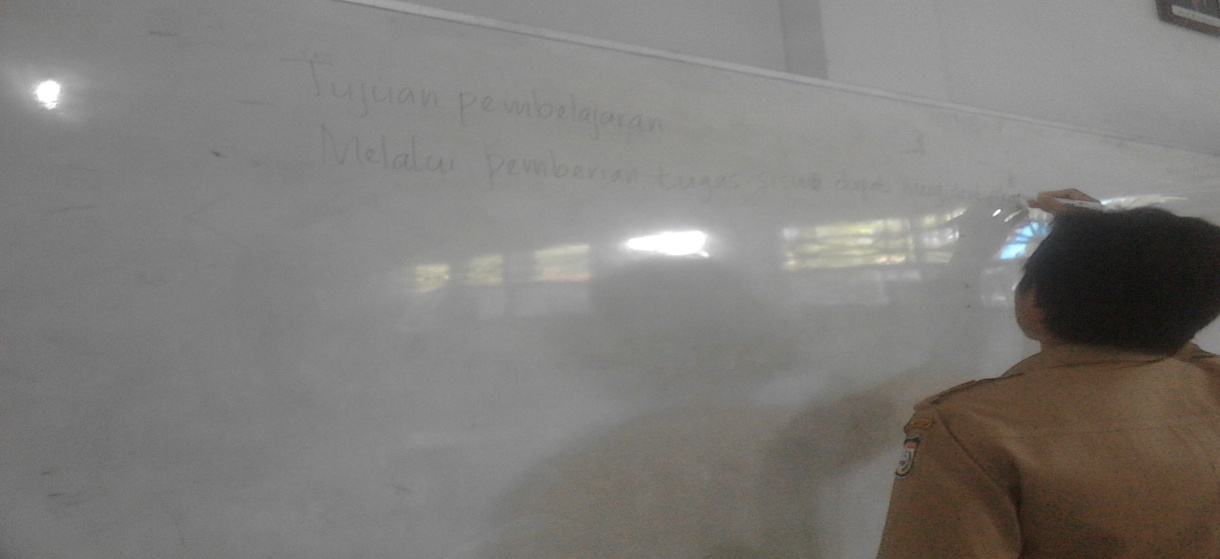 Tujuan pembelajaran
Melalui pemberian tugas siswa dapat